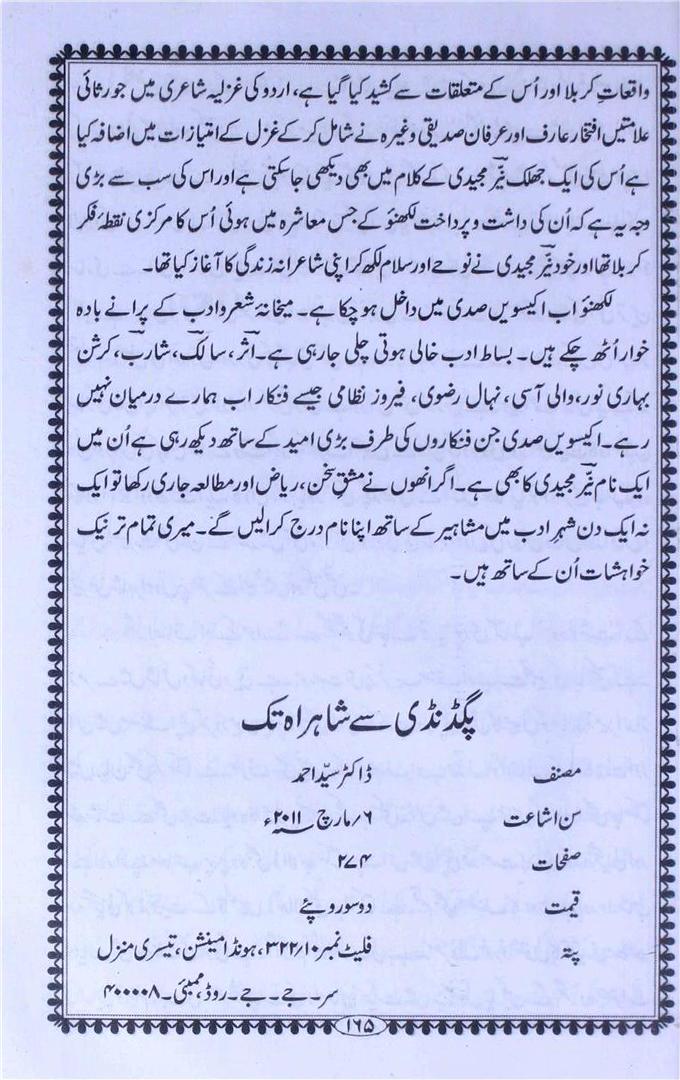 واقعاتِ کربلا اور اُس کے متعلقات سے کشید کیا گیا ہے، اردو کی غزلیہ شاعری میں جو رثائی
علامتیں افتخار عارف اور عرفان صدیقی وغیرہ نے شامل کر کے غزل کے امتیازات میں اضافہ کیا
ہے اُس کی ایک جھلک نیّر مجیدی کے کلام میں بھی دیکھی جاسکتی ہے اور اس کی سب سے بڑی
وجہ یہ ہے کہ اُن کی داشت و پرداخت لکھنؤ کے جس معاشرہ میں ہوئی اُس کا مرکزی نقطۂ فکر
کربلا تھا اور خود نیّر مجیدی نے نوحے اور سلام لکھ کر اپنی شاعرانہ زندگی کا آغاز کیا تھا۔
لکھنؤ اب اکیسویں صدی میں داخل ہو چکا ہے۔ میخانۂ شعر و ادب کے پرانے بادہ
خوار اُٹھ چکے ہیں۔ بساط ادب خالی ہوتی چلی جارہی ہے۔ اثر، سالک، شارب، کرشن
بہاری نور، والی آسی، نہال رضوی، فیروز نظامی جیسے فنکار اب ہمارے درمیان نہیں
رہے۔ اکیسویں صدی جن فنکاروں کی طرف بڑی امید کے ساتھ دیکھ رہی ہے اُن میں
ایک نام نیّر مجیدی کا بھی ہے۔ اگر انھوں نے مشق سخن، ریاض اور مطالعہ جاری رکھا تو ایک
نہ ایک دن شہرِ ادب میں مشاہیر کے ساتھ اپنا نام درج کرالیں گے۔ میری تمام تر نیک
خواہشات اُن کے ساتھ ہیں۔
پگڈنڈی سے شاہراہ تک
مصنف ڈاکٹر سیّد احمد
سن اشاعت ۶/مارچ ۲۰۱۱ء
صفحات ۲۷۴
قیمت دوسو روپئے
پتہ فلیٹ نمبر ۳۲۲/۱۰، ہونڈا مینشن، تیسری منزل
سر۔ جے۔ جے۔ روڈ، ممبئی۔ ۴۰۰۰۰۸
۱۶۵